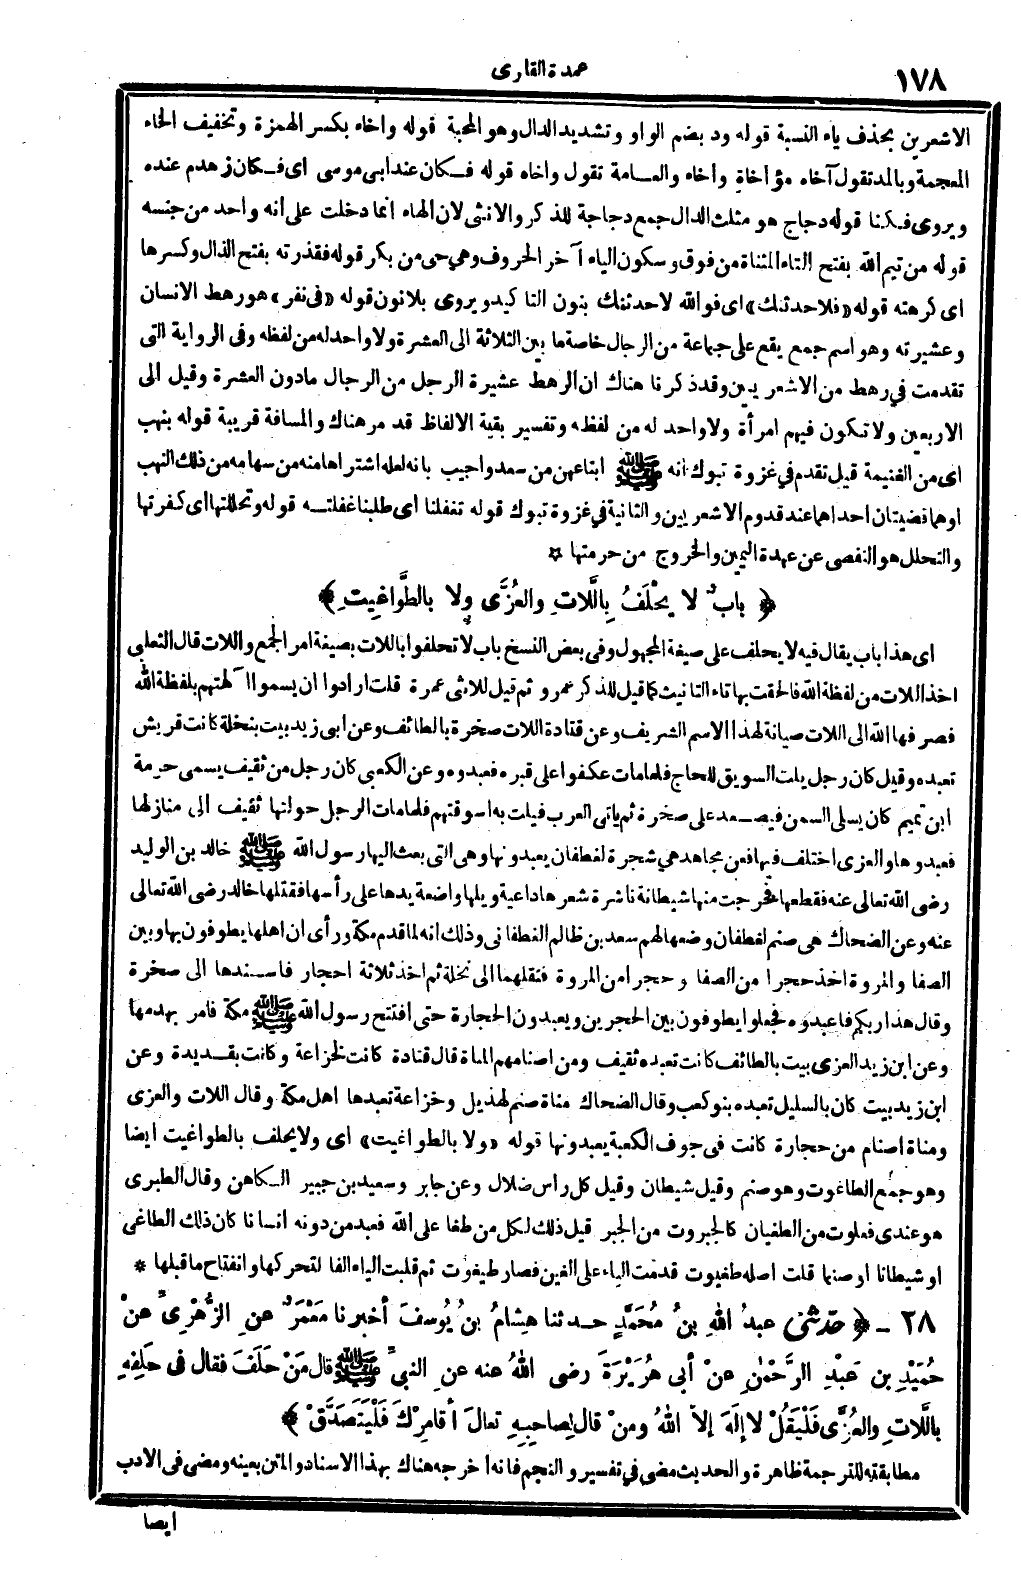 ١٧٨
عمدة القارى
الاشعرين بحذف ياء النسبة قوله ود بضم الواو وتشديد الدال وهو المحبة قوله واخاء بكسر الهمزة وتخفيف الخاء
المعجمة وبالمد تقول آخاه مؤاخاة وأخاه والعـامة تقول واخاه قوله فـكان عند ابى موسى اى فـكان زهدم عنده
ويروى فـكنا قوله دجاج هو مثلث الدال جمع دجاجة للذكر والانثى لان الهاء انما دخلت على أنه واحد من جنسه
قوله من تيم الله بفتح التاء المثناة من فوق وسكون الياء آخر الحروف وهي حى من بكر قوله فقذرته بفتح الذال وكسرها
اى كرهته قوله «فلاحدثنك» اى فوالله لاحدثنك بنون التاكيد ويروى بلا نون قوله «فى نفر» هو رهط الانسان
وعشيرته وهو اسم جمع يقع على جماعة من الرجال خاصة ما بين الثلاثة الى العشرة ولا واحد له من لفظه وفى الرواية التى
تقدمت في رهط من الاشعريين وقد ذكرنا هناك ان الرهط عشيرة الرجل من الرجال مادون العشرة وقيل الى
الاربعين ولا تكون فيهم امرأة ولا واحد له من لفظه وتفسير بقية الالفاظ قد مر هناك والمسافة قريبة قوله بنهب
اى من الغنيمة قيل تقدم في غزوة تبوك انه ﷺ ابتاعهن من سعد واجيب بانه لعله اشتراها منه من سهامه من ذلك النهب
اوهما قضيتان احداهما عند قدوم الاشعريين والثانية في غزوة تبوك قوله تغفلنا اى طلبنا غفلتـه قوله وتحللتها اى كفرتها
والتحلل هو التفصى عن عهدة اليمين والخروج من حرمتها *
﴿ بابٌ لا يُحْلَفُ بِاللَّاتِ والعُزَّى ولا بالطَّوَاغِيتِ ﴾
اى هذا باب يقال فيه لا يحلف على صيغة المجهول وفى بعض النسخ باب لا تحلفوا باللات بصيغة امر الجمع واللات قال الثعلبى
اخذ اللات من لفظة الله فالحقت بها تاء التانيث كما قيل للذكر عمرو ثم قيل للانثى عمرة قلت ارادوا ان يسموا آلهتهم بلفظة الله
فصرفها الله الى اللات صيانة لهذا الاسم الشريف وعن قتادة اللات صخرة بالطائف وعن ابى زيد بيت بنخلة كانت قريش
تعبده وقيل كان رجل يلت السويق للحاج فلما مات عكفوا على قبره فعبدوه وعن الكعبى كان رجل من ثقيف يسمى حرمة
ابن تميم كان يسلى السمن فيضـعه على صخرة ثم ياتى العرب فيلت به اسوقتهم فلما مات الرجل حولتها ثقيف الى منازلها
فعبدوها والعزى اختلف فيها فعن مجاهد هي شجرة لغطفان يعبدونها وهى التى بعث اليها رسول الله ﷺ خالد بن الوليد
رضى الله تعالى عنه فقطعها فخرجت منها شيطانة ناشرة شعرها داعية ويلها واضعة يدها على رأسها فقتلها خالد رضى الله تعالى
عنه وعن الضحاك هى صنم لغطفان وضعها لهم سعد بن ظالم الغطفانى وذلك انه لما قدم مكة ورأى ان اهلها يطوفون بها وبين
الصفا والمروة اخذ حجرا من الصفا وحجرا من المروة فنقلهما الى نخلة ثم اخذ ثلاثة احجار فاسـندها الى صخرة
وقال هذا ربكم فاعبدوه فجعلوا يطوفون بين الحجرين ويعبدون الحجارة حتى افتتح رسول الله ﷺ مكة فامر بهدمها
وعن ابن زيد العزى بيت بالطائف كانت تعبده ثقيف ومن اصنامهم المناة قال قتادة كانت لخزاعة وكانت بقـديدة وعن
ابن زيد بيت كان بالسليل تعبده بنو كعب وقال الضحاك مناة صنم لهذيل وخزاعة تعبدها اهل مكة وقال اللات والعزى
ومناة اصنام من حجارة كانت فى جوف الكعبة يعبدونها قوله «ولا بالطواغيت» اى ولا يحلف بالطواغيت ايضا
وهو جمع الطاغوت وهو صنم وقيل شيطان وقيل كل راس ضلال وعن جابر وسعيد بن جبير الـكاهن وقال الطبرى
هو عندى فعلوت من الطغيان كالجبروت من الجبر قيل ذلك لكل من طغا على الله فعبد من دونه انسانا كان ذلك الطاغى
او شيطانا او صنما قلت اصله طغيوت قدمت الياء على الغين فصار طيغوت ثم قلبت الياء الفا لتحركها وانفتاح ماقبلها *
٢٨ ـ ﴿ حَدَّثَنى عبدُ اللهِ بنُ مُحَمَّدٍ حـدثنا هِشامُ بنُ يُوسفَ أخبرنا مَعْمَرٌ عنِ الزُّهْرِىِّ عنْ
حُمَيْدِ بن عَبْدِ الرَّحْمٰنِ عنْ أبى هُرَيْرَةَ رضى اللهُ عنه عنِ النبىِّ ﷺ قال مَنْ حَلَفَ فقال فى حَلِفِهِ
باللَّاتِ والعُزَّى فَلْيَقُلْ لا إلَهَ إلَّا اللهُ ومنْ قال لِصاحِبِهِ تعالَ أُقامِرْكَ فَلْيَتَصَدَّقْ ﴾
مطابقته للترجمة ظاهرة والحديث مضى في تفسير والنجم فانه اخرجه هناك بهذا الاسناد والمتن بعينه ومضى فى الادب
ايضا